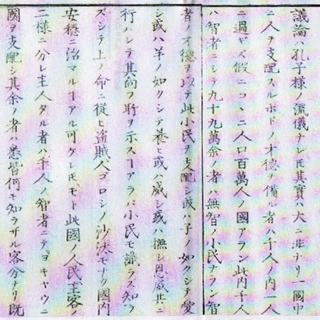 議論ハ孔子様ノ流儀ナレ𪜈其實ハ大ニ非ナリ一國中
ニ人ヲ支配スルホドノ才德ヲ備ル者ハ千人ノ内一人
ニ過ズ假ニコヽニ人口百萬人ノ國アラン此内千人
ハ智者ニシテ九十九萬餘ノ者ハ無智ノ小民ナラン智
者ノ才德ヲ以テ此小民ヲ支配シ或ハ子ノ如クシテ愛
シ或ハ羊ノ如クシテ養ヒ或ハ威シ或ハ撫シ恩威共ニ
行ハレテ其向フ所ヲ示スヿアラバ小民モ識ラズ知ラ
ズシテ上ノ命ニ從ヒ盗賊人ゴロシノ沙汰モナク國内
安穩ニ治マルヿアル可ケレ𪜈モト此國ノ人民主客ノ
二様ニ分レ主人タル者ハ千人ノ智者ニテヨキヤウニ
國ヲ支配シ其餘ノ者ハ悉皆何モ知ラザル客分ナリ既